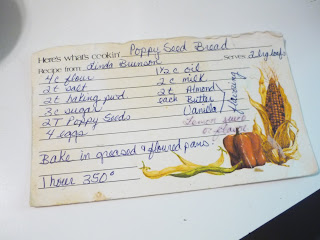 Here's what's cookin' Poppy Seed Bread
Recipe from Linda Brunson Serves 2 big loafs
4 c flour 1½ c oil
2 t salt 2 c milk
2 t baking pwd 2 t Almond
3 c sugar each Butter
2 T Poppy Seeds Vanilla
4 eggs flavoring
Lemon
Bake in greased & floured pans!
1 hour 350°